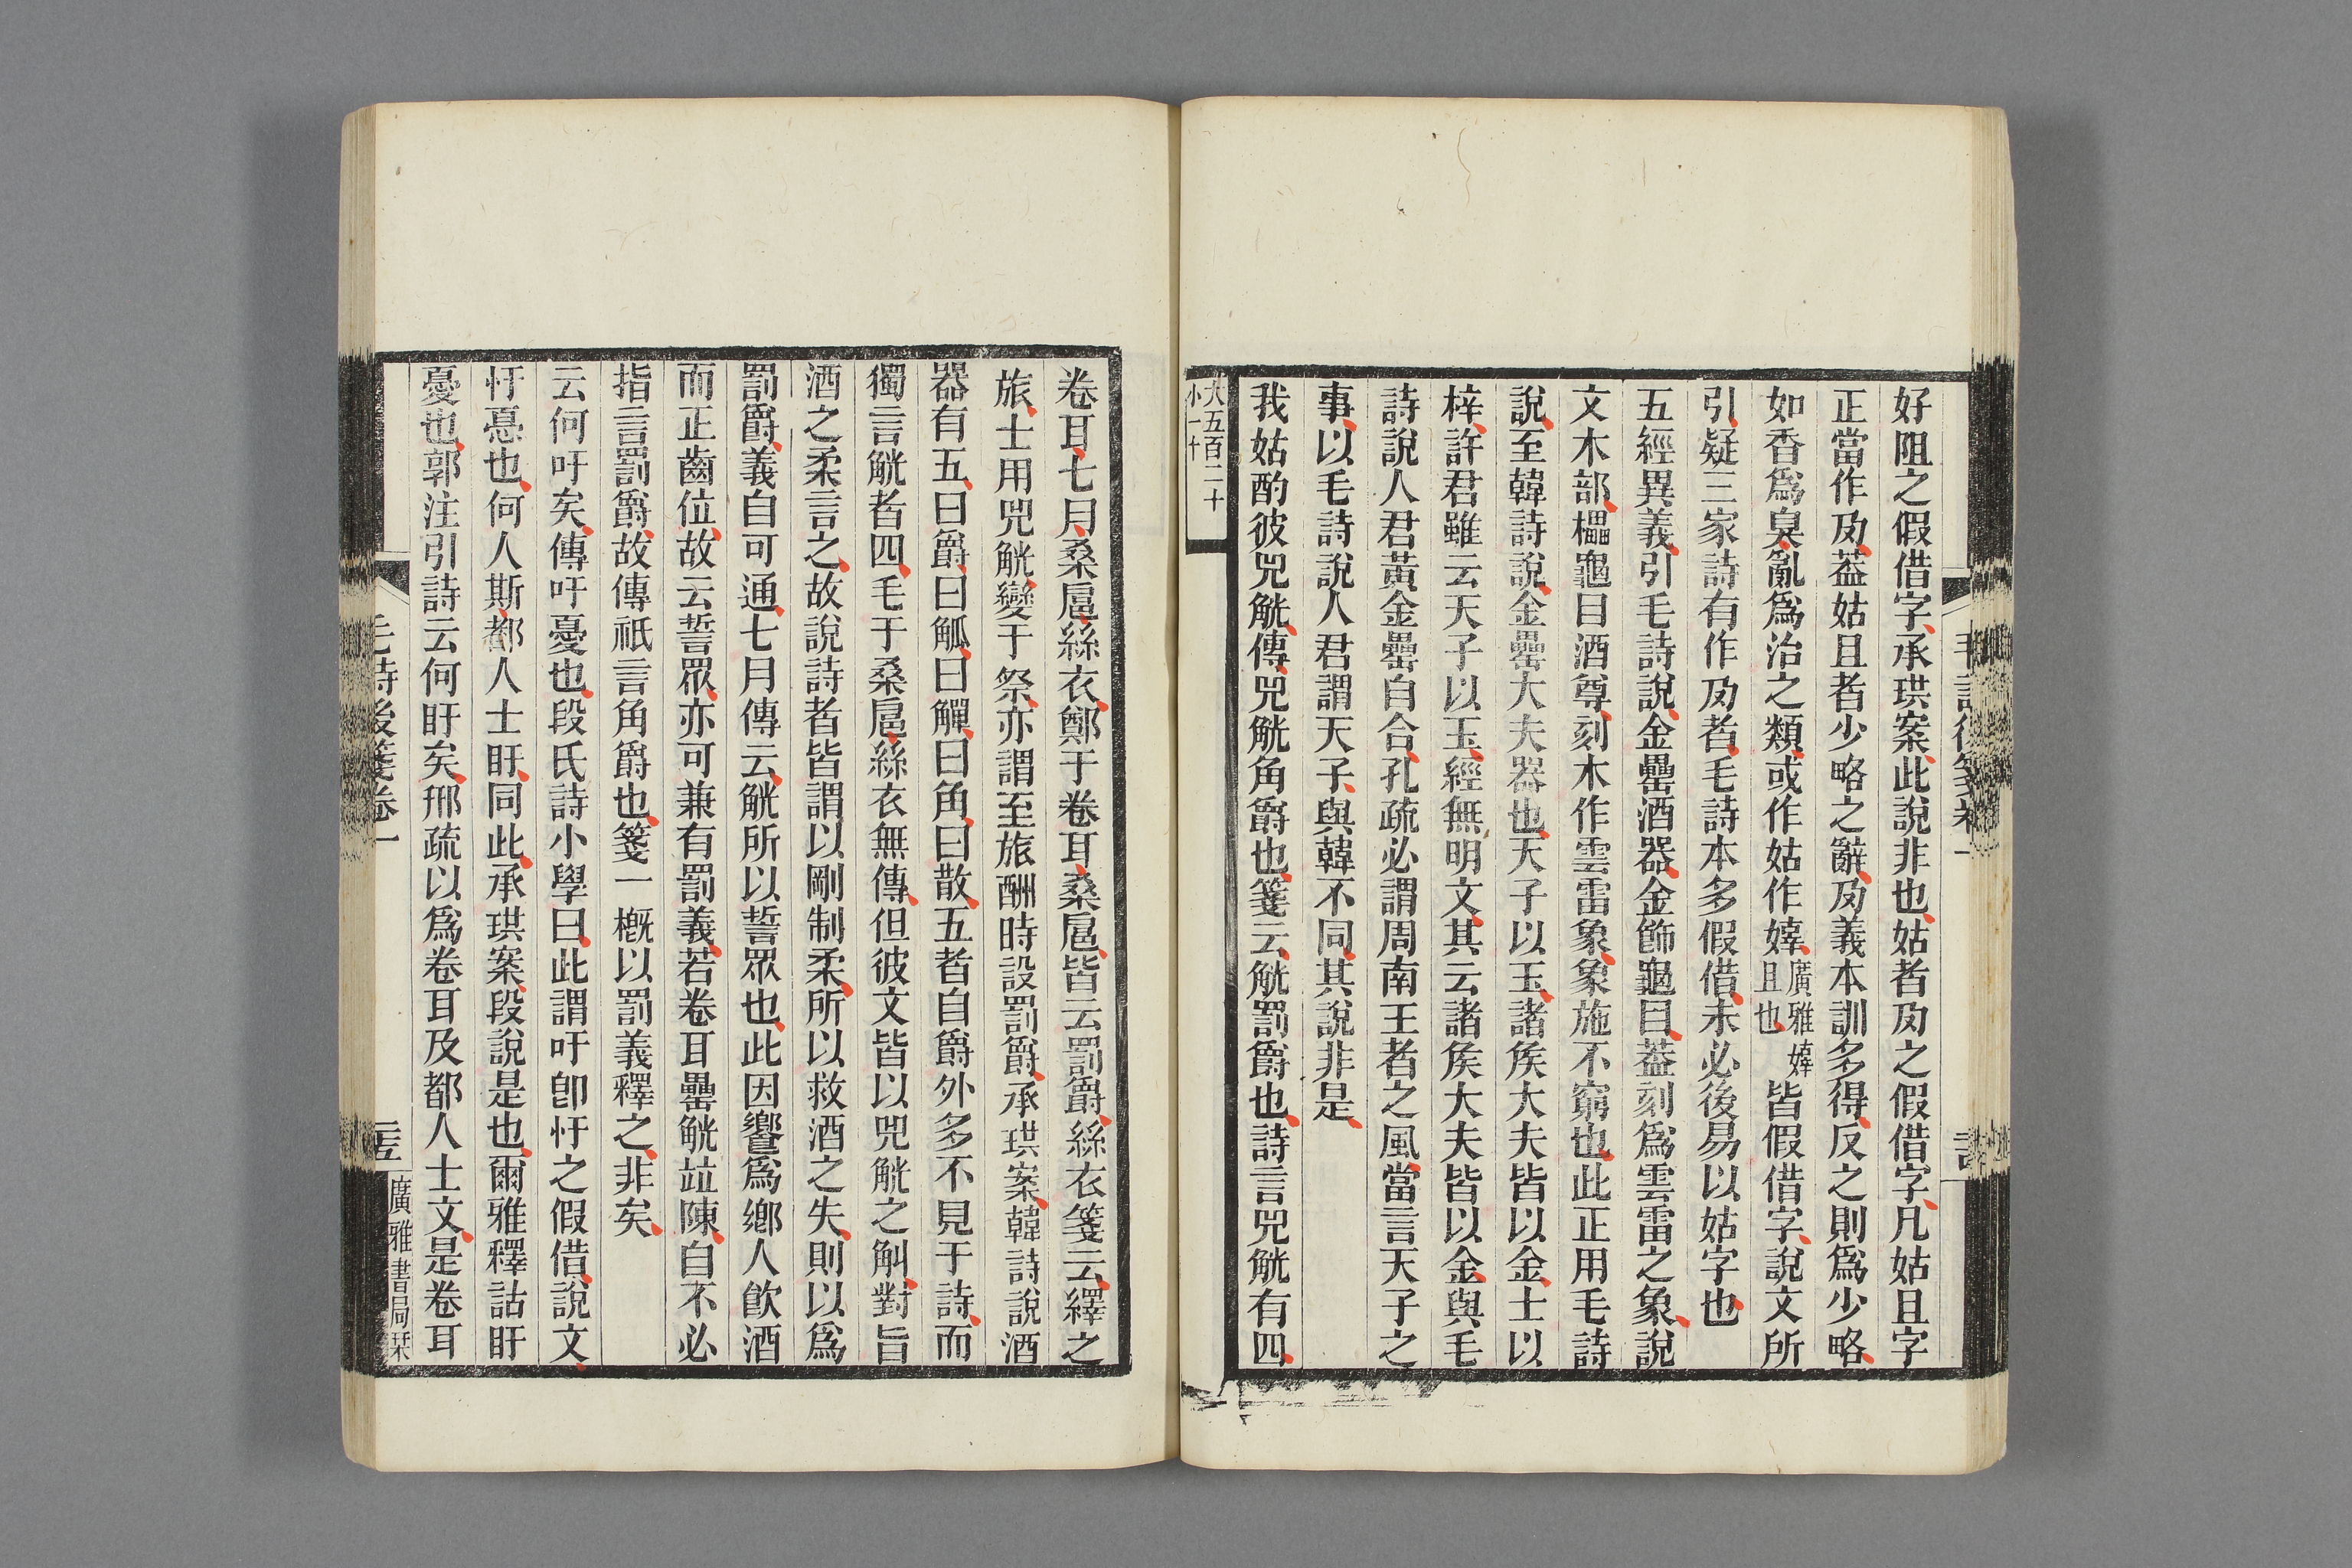 好阻之假借字承珙案此說非也姑者夃之假借字凡姑且字
正當作夃葢姑且者少略之辭夃義本訓多得反之則爲少略
如香爲臭亂爲治之類或作姑作㛓廣雅㛓且也皆假借字說文所
引疑三家詩有作夃者毛詩本多假借未必後易以姑字也
五經異義引毛詩說金罍酒器金飾龜目葢刻爲雲雷之象說
文木部櫑龜目酒尊刻木作雲雷象象施不窮也此正用毛詩
說至韓詩說金罍大夫器也天子以玉諸矦大夫皆以金士以
梓許君雖云天子以玉經無明文其云諸矦大夫皆以金與毛
詩說人君黃金罍自合孔疏必謂周南王者之風當言天子之
事以毛詩說人君謂天子與韓不同其說非是
我姑酌彼兕觥傳兕觥角爵也箋云觥罰爵也詩言兕觥有四
大五百二十
小一十
卷耳七月桑扈絲衣鄭于卷耳桑扈皆云罰爵絲衣箋云繹之
旅士用兕觥變于祭亦謂至旅酬時設罰爵承珙案韓詩說酒
器有五曰爵曰觚曰觶曰角曰散五者自爵外多不見于詩而
獨言觥者四毛于桑扈絲衣無傳但彼文皆以兕觥之觓對旨
酒之柔言之故說詩者皆謂以剛制柔所以救酒之失則以爲
罰爵義自可通七月傳云觥所以誓眾也此因饗爲鄉人飮酒
而正齒位故云誓眾亦可兼有罰義若卷耳罍觥竝陳自不必
指言罰爵故傳祇言角爵也箋一槪以罰義釋之非矣
云何吁矣傳吁憂也段氏詩小學曰此謂吁卽忓之假借說文
忓惪也何人斯都人士盱同此承珙案段說是也爾雅釋詁盱
憂也郭注引詩云何盱矣邢疏以爲卷耳及都人士文是卷耳
毛詩後箋卷一
廣雅書局栞